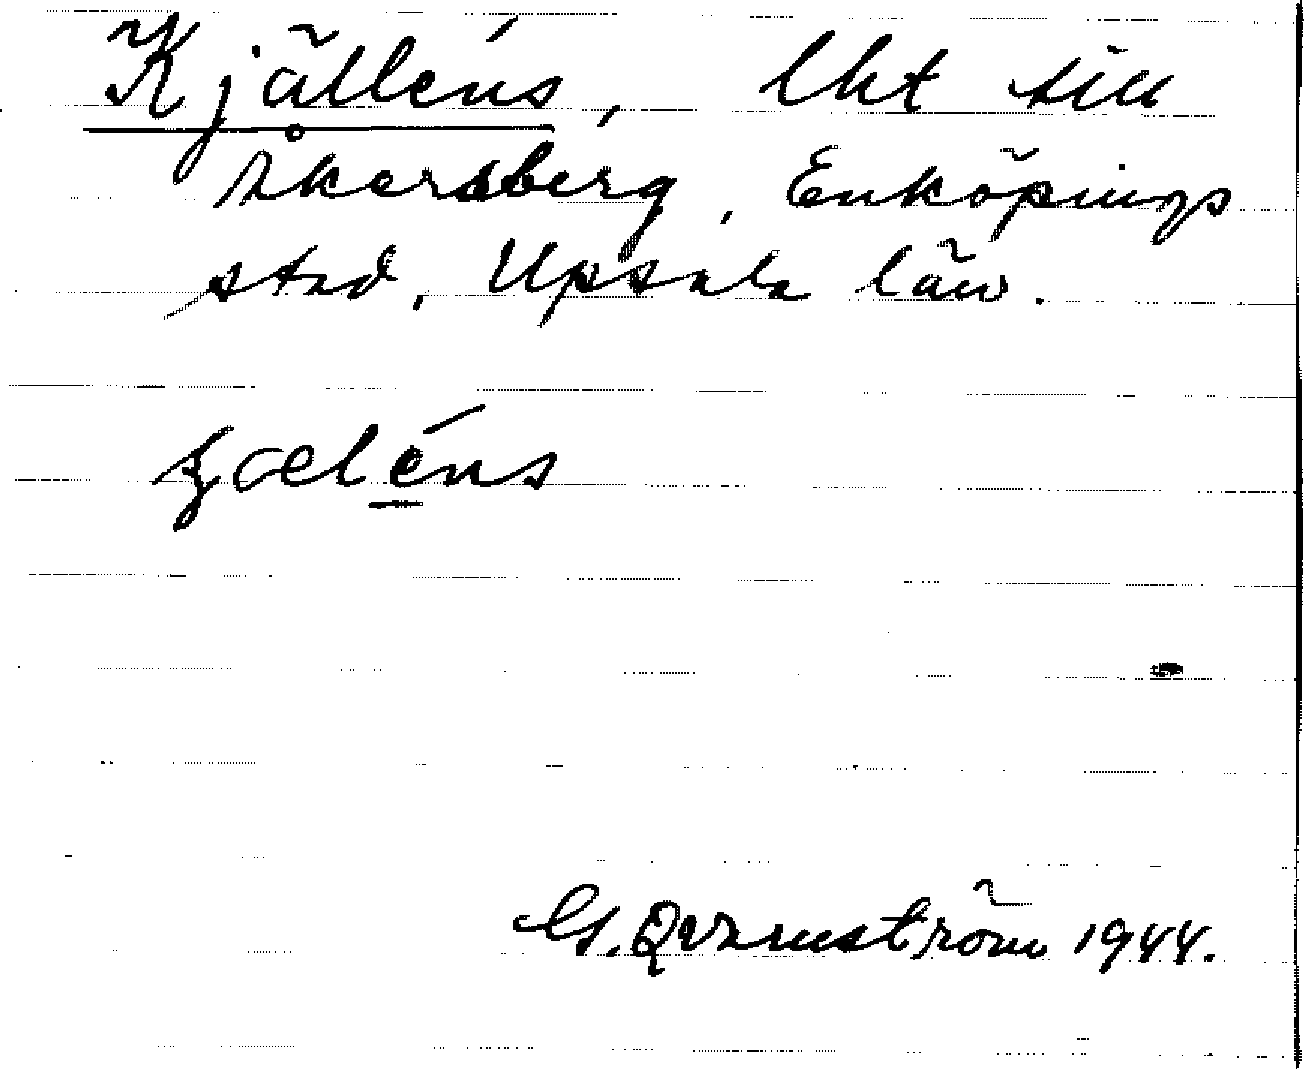 Kjälléns, lht till
Åkersberg, Enköpings
stad, Upsala län.
G. Qvarnström 1944.